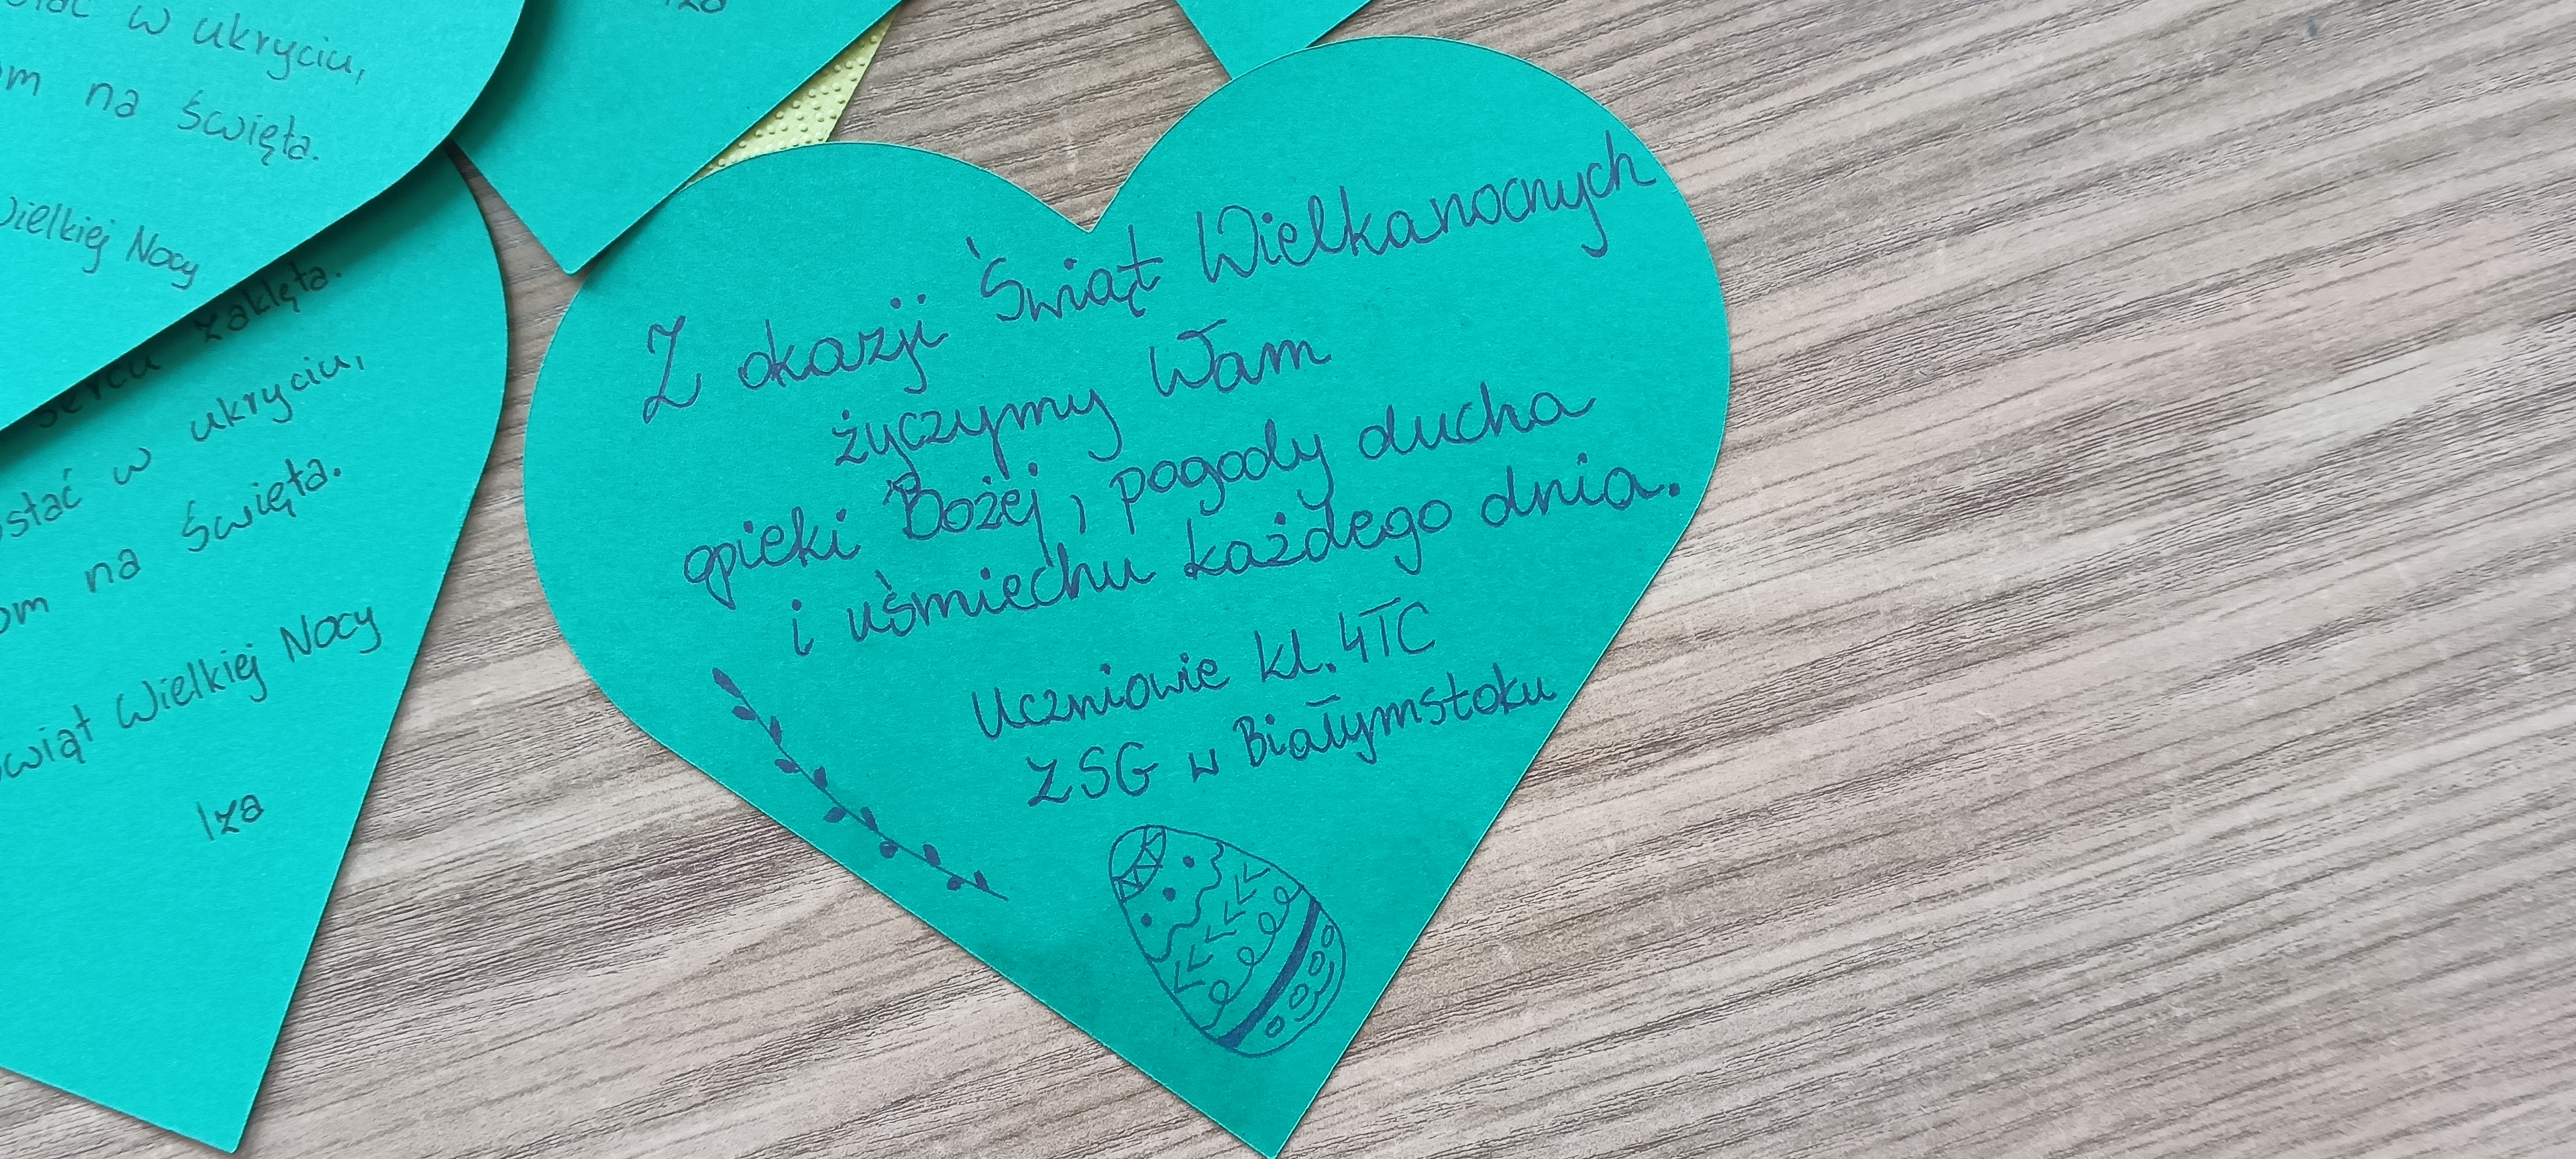 w ukryciu,
na święta.
Wielkiej Nocy
Iza
sercu zaklęta.
w ukryciu,
na święta.
Wielkiej Nocy
Iza
Z okazji Świąt Wielkanocnych
życzymy Wam
opieki Bożej, pogody ducha
i uśmiechu każdego dnia.
Uczniowie kl. 4TC
ZSG w Białymstoku